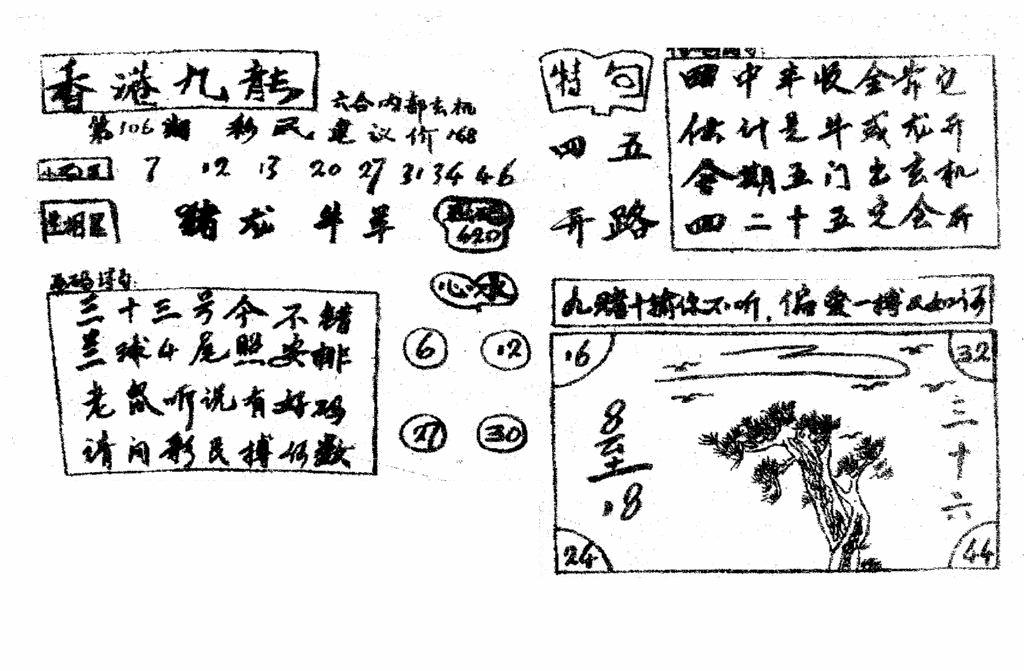 香港九龙
六合内部玄机
第106期 彩民建议价168
7 12 13 20 27 31 34 46
生相
猪龙牛羊
620
心水
6 12
27 30
三十三号今不错
兰球4尾照安排
老鼠听说有好码
请问彩民搏何数
特句
四五
开路
四中丰收全靠它
估计是牛或龙开
今期五门出玄机
四二十五定会开
九赌十输你不听,偏爱一搏又如何
16
32
8至18
三十六
24
44